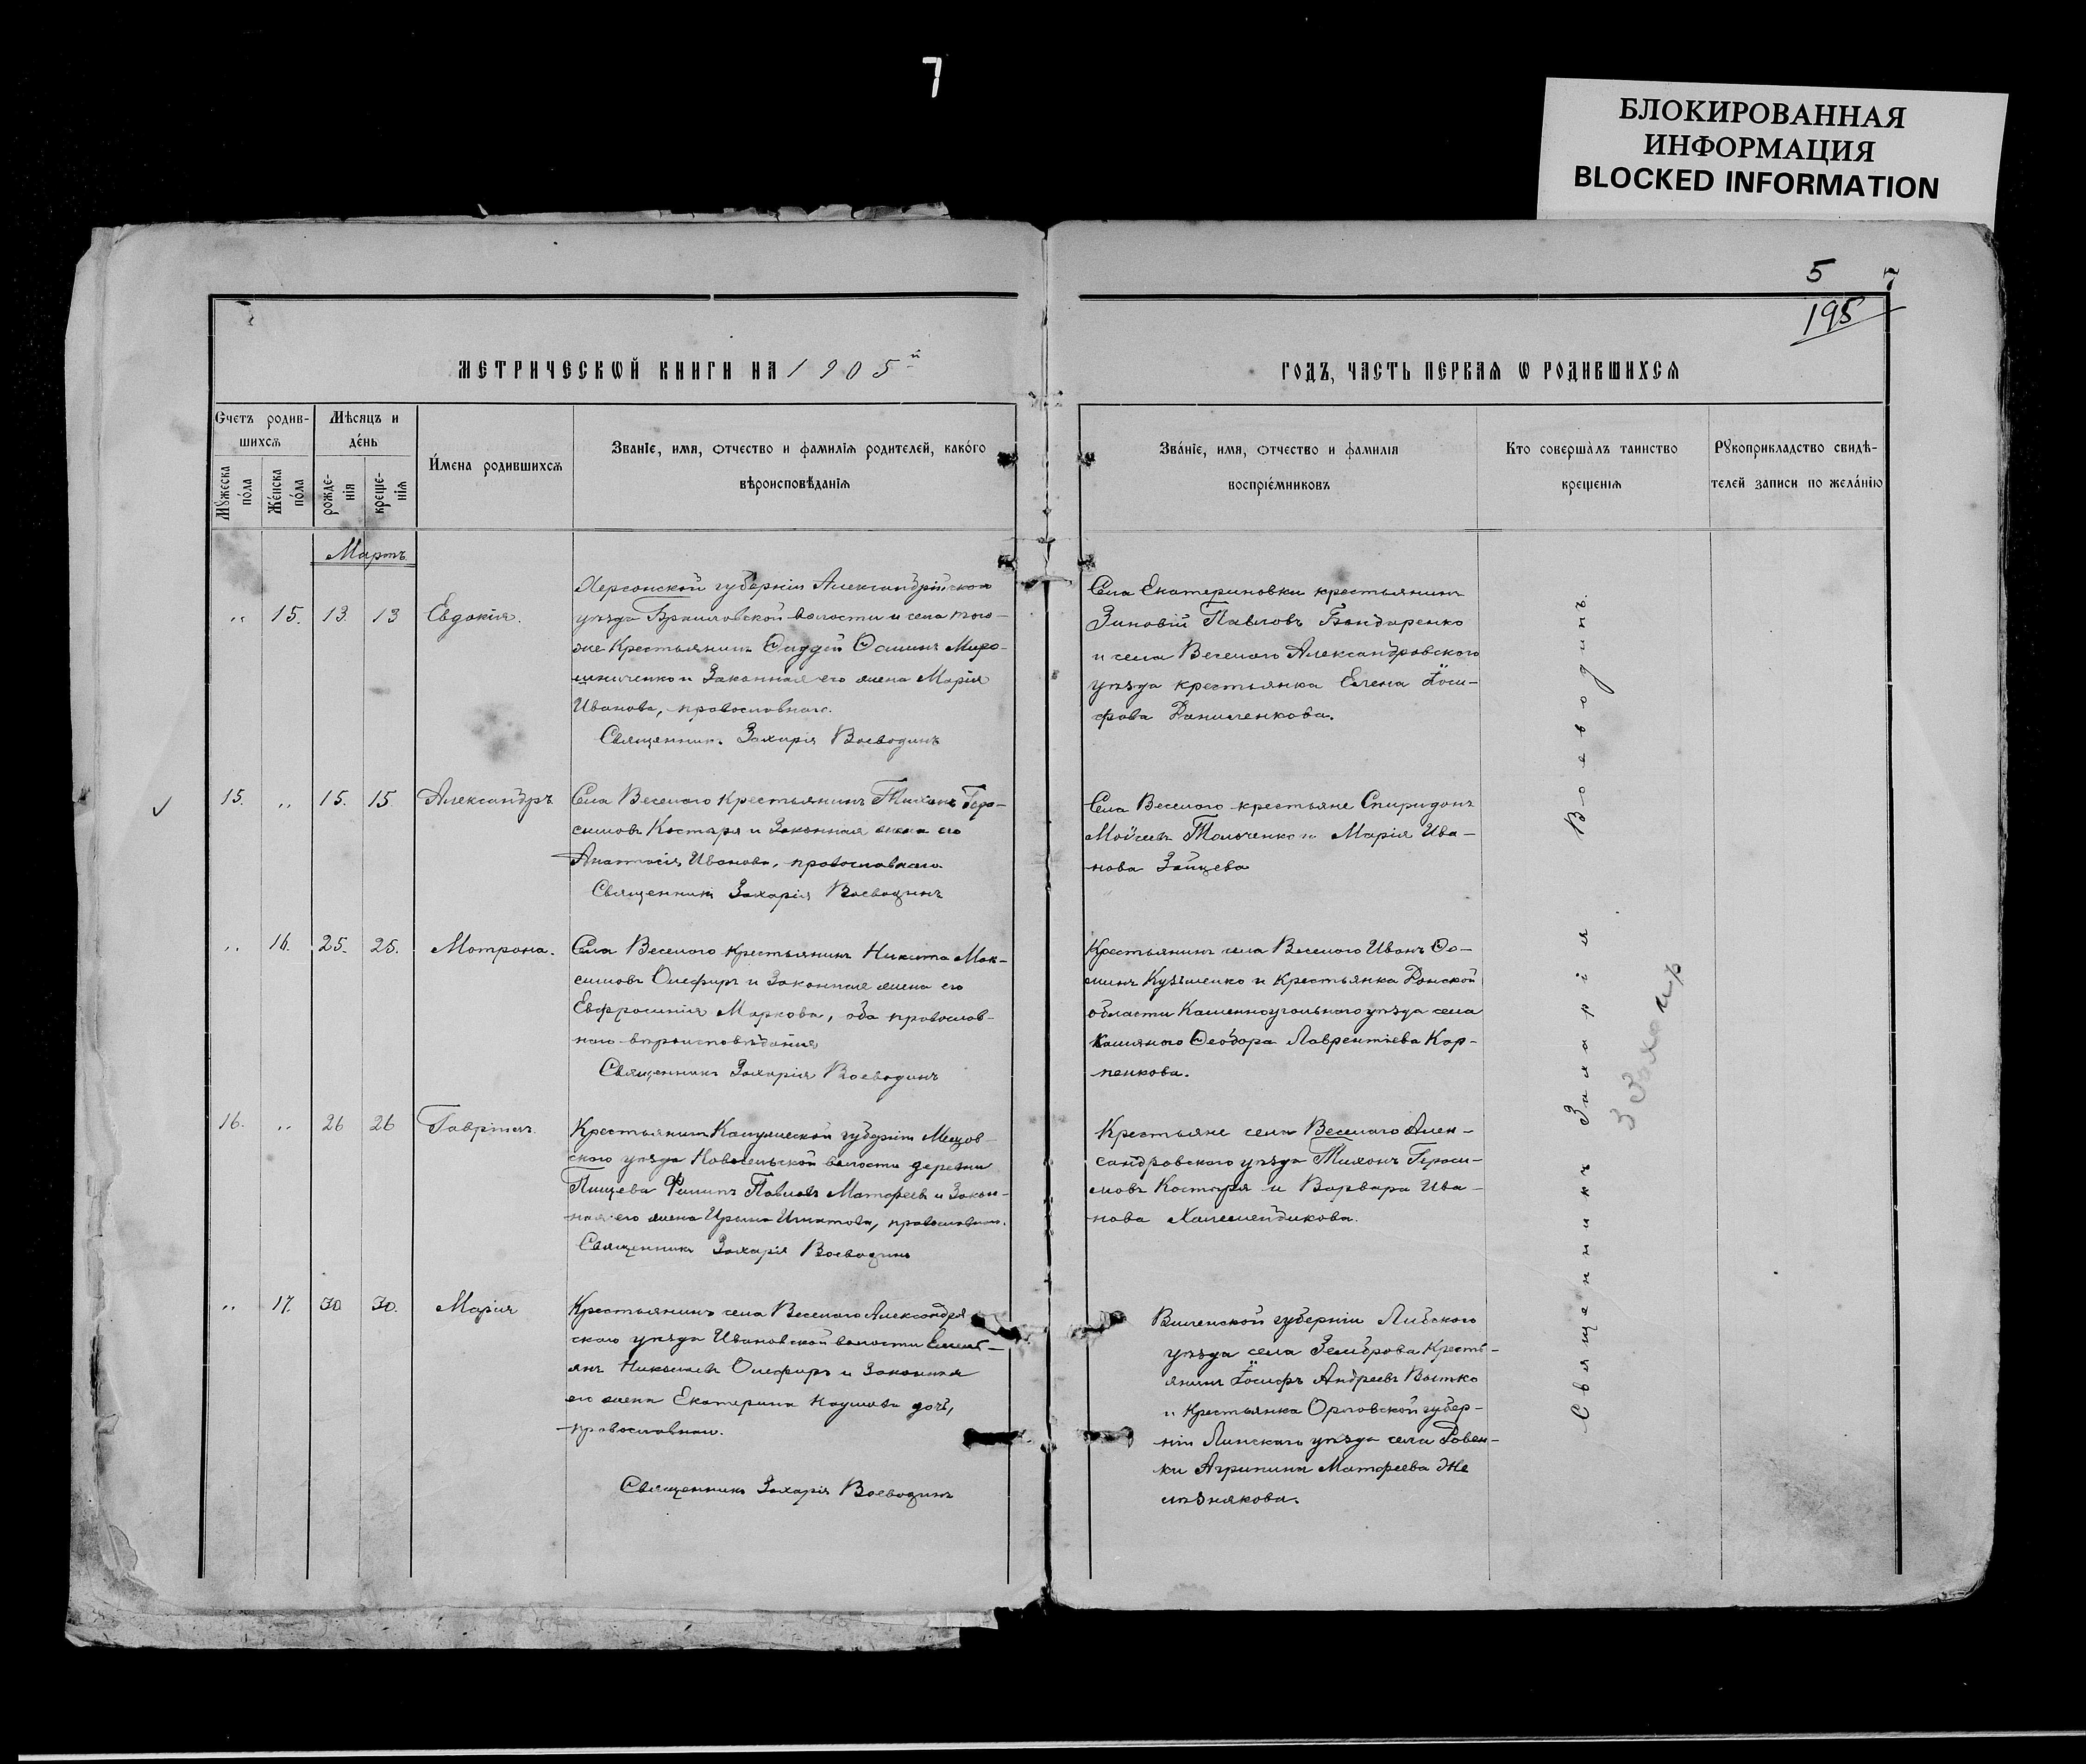 7
БЛОКИРОВАННАЯ
ИНФОРМАЦИЯ
BLOCKED INFORMATION
5 7
195
МЕТРИЧЕСКѠЙ КНИГИ НА 1905й
ГОДЪ, ЧАСТЬ ПЕРВАѦ Ѡ РОДИВШИХСѦ
Счетъ родив-
шихсѧ
Мꙋжеска пóла
Жéнска пóла
Мѣсяцъ и
дéнь
рожде-
нія
креще-
нія
И́мена родившихсѧ
Званіе, имя, ѻтчество и фамиліѧ родителей, какóго
вѣроисповѣданіѧ
Звáніе, имя, ѻтчество и фамиліѧ
воспріéмниковъ
Кто совершàлъ таинство
крещеніѧ
Рꙋкоприкладство свидѣ-
телей записи по желáнію
Мартъ
„ 15. 13 13 Евдокія.
Херсонской губерніи Александрійскаго
уѣзда волости и села того-
же Крестьянинъ Ѳаддей Миро-
шниченко и Законная его жена Марія
Иванова, православнаго.
Священникъ Захарія Воеводинъ
Села Екатериновки крестьянинъ
Зиновій Павловъ Бондаренко
и села Веселаго Александровскаго
уѣзда крестьянка Елена Іоси-
фова Даниленкова.
15. „ 15. 15 Александръ
Села Веселаго Крестьянинъ Тихонъ Гера-
симовъ Костыря и Законная жена его
Анастасія Иванова, православнаго.
Священникъ Захарія Воеводинъ
Села Веселаго крестьяне Спиридонъ
Мойсеевъ Толоченко и Марія Ива-
нова Зайцева
„ 16. 25. 25. Мотрона.
Села Веселаго Крестьянинъ Никита Мак-
симовъ Олефиръ и Законная жена его
Евфросинія Маркова, оба православ-
наго вѣроисповѣданія
Священникъ Захарія Воеводинъ
Крестьянинъ села Веселаго Иванъ Ѳо-
минъ Кузьменко и Крестьянка Донской
области Каменноугольнаго уѣзда села
Ѳеодора Лаврентіева Кар-
пенкова.
16. „ 26 26 Гавріилъ.
Крестьянинъ Калужской губерніи Мещов-
скаго уѣзда Новосельской волости деревни
Пищева Филипъ Павловъ Матфеевъ и Закон-
ная его жена Ирина Игнатова, православнаго.
Священникъ Захарія Воеводинъ
Крестьяне села Веселаго Алек-
сандровскаго уѣзда Тихонъ Гераси-
мовъ Костыря и Варвара Ива-
нова
„ 17. 30 30. Марія
Крестьянинъ села Веселаго Александров
скаго уѣзда Ивановской волости Емель-
янъ Николаевъ Олефиръ и Законная
его жена Екатерина Наумова дочь,
православнаго.
Священникъ Захарія Воеводинъ
Виленской губерніи Лидскаго
уѣзда села Кресть-
янинъ Іосифъ Андреевъ
и Крестьянка Орловской губер-
ніи уѣзда села Ровен-
ки Агрипина Матфеева Же
лѣзнякова.
Священникъ Захарія Воеводинъ.